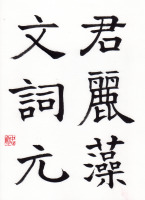 君麗藻
文詞元